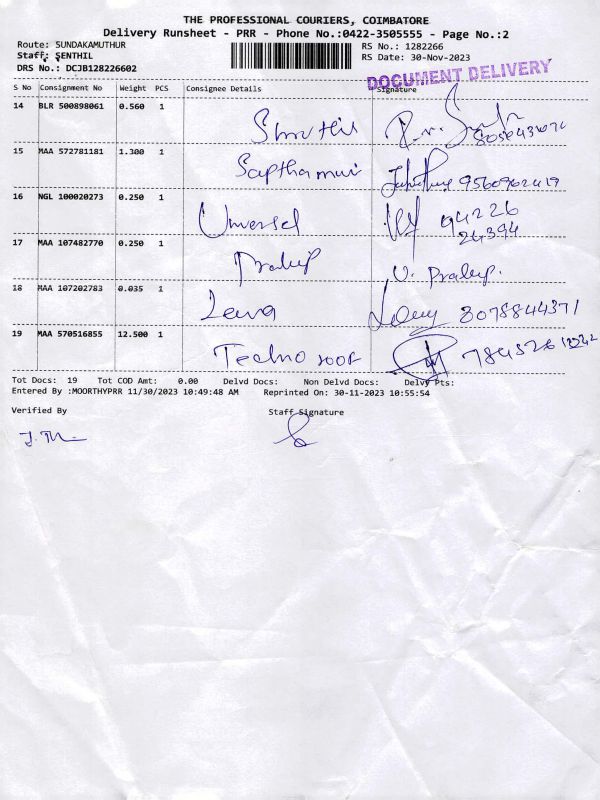 THE PROFESSIONAL COURIERS, COIMBATORE
Delivery Runsheet - PRR - Phone No.:0422-3505555 - Page No.:2
Route: SUNDAKAMUTHUR RS No.: 1282266
Staff: SENTHIL RS Date: 30-Nov-2023
DRS No.: DCJB128226602
DOCUMENT DELIVERY
S No Consignment No Weight PCS Consignee Details Signature
14 BLR 500898061 0.560 1
15 MAA 572781181 1.300 1 Sapthamui 9560962419
16 NGL 100020273 0.250 1 Unversel 94226
24394
17 MAA 107482770 0.250 1 Pradeep V. Pradeep.
18 MAA 107202783 0.035 1 8078844371
19 MAA 570516855 12.500 1 Techno roof
Tot Docs: 19 Tot COD Amt: 0.00 Delvd Docs: Non Delvd Docs: Delvy Pts:
Entered By :MOORTHYPRR 11/30/2023 10:49:48 AM Reprinted On: 30-11-2023 10:55:54
Verified By Staff Signature